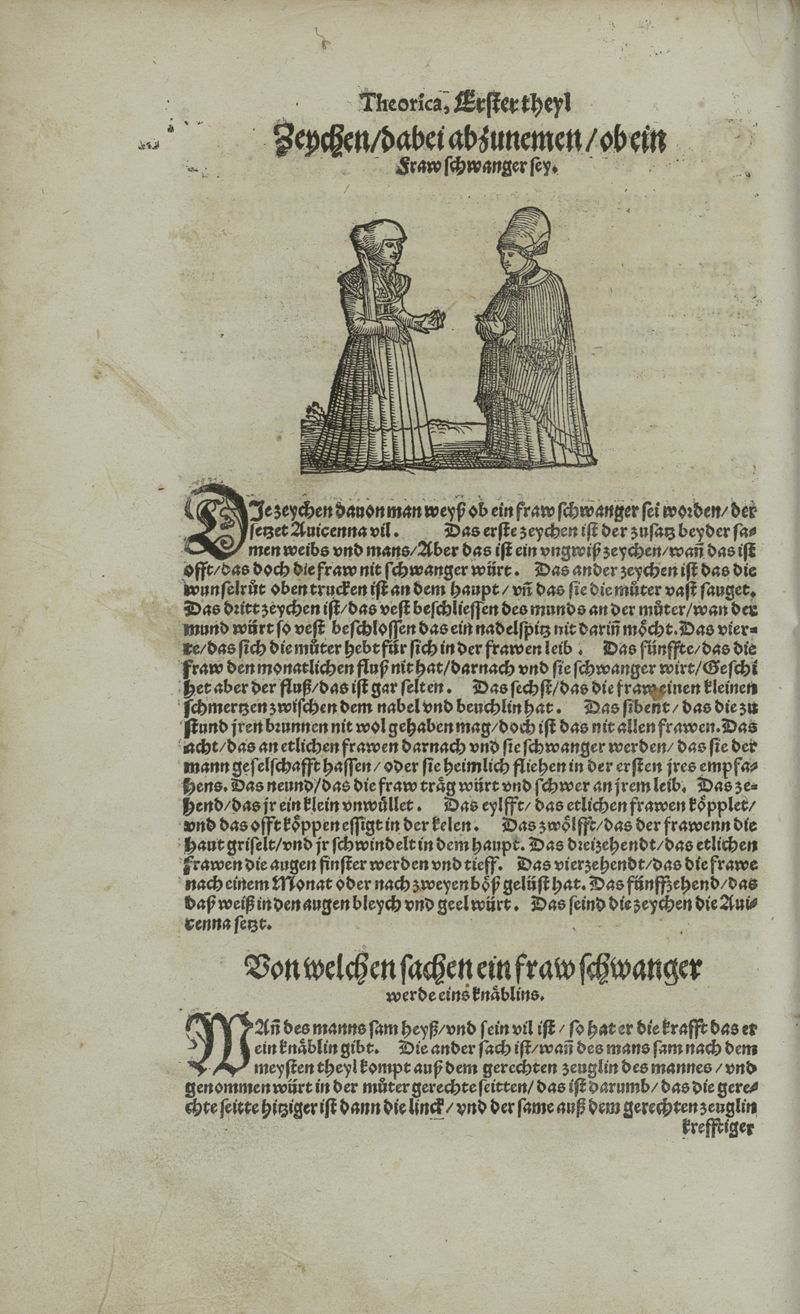 Theorica, Erster theyl
Zeychen/dabei abzunemen/ob ein
Fraw schwanger sey.
DIe zeychen dauon man weyß ob ein fraw schwanger sei worden/der
setzet Auicenna vil. Das erste zeychen ist der zusatz beyder sa-
men weibs vnd mans/Aber das ist ein vngwiß zeychen/wañ das ist
offt/das doch die fraw nit schwanger würt. Das ander zeychen ist das die
wunselrůt oben trucken ist an dem haupt/vñ das sie die můter vast sauget.
Das dritt zeychen ist/das vest beschliessen des munds an der můter/wan der
mund würt so vest beschlossen das ein nadelspitz nit dariñ möcht. Das vier-
te/das sich die můter hebt für sich in der frawen leib. Das fünffte/das die
fraw den monatlichen fluß nit hat/darnach vnd sie schwanger wirt/Geschi
het aber der fluß/das ist gar selten. Das sechst/das die fraw einen kleinen
schmertzen zwischen dem nabel vnd beuchlin hat. Das sibent/das die zu
stund jren brunnen nit wol gehaben mag/doch ist das nit allen frawen. Das
acht/das an etlichen frawen darnach vnd sie schwanger werden/das sie der
mann geselschafft hassen/oder sie heimlich fliehen in der ersten jres empfa-
hens. Das neund/das die fraw träg würt vnd schwer an jrem leib. Das ze-
hend/das jr ein klein vnwüllet. Das eylfft/das etlichen frawen köpplet/
vnd das offt köppen essigt in der kelen. Das zwölfft/das der frawenn die
haut griselt/vnd jr schwindelt in dem haupt. Das dreizehendt/das etlichen
frawen die augen finster werden vnd tieff. Das vierzehendt/das die frawe
nach einem Monat oder nach zweyen böß gelüst hat. Das fünffzehend/das
daß weiß in den augen bleych vnd geel würt. Das seind die zeychen die Aui-
cenna setzt.
Von welchen sachen ein fraw schwanger
werde eins knäblins.
WAñ des manns sam heyß/vnd sein vil ist/so hat er die krafft das er
ein knäblin gibt. Die ander sach ist/wañ des mans sam nach dem
meysten theyl kompt auß dem gerechten zeuglin des mannes/vnd
genommen würt in der můter gerechte seitten/das ist darumb/das die gere-
chte seitte hitziger ist dann die linck/vnd der same auß dem gerechten zeuglin
krefftiger